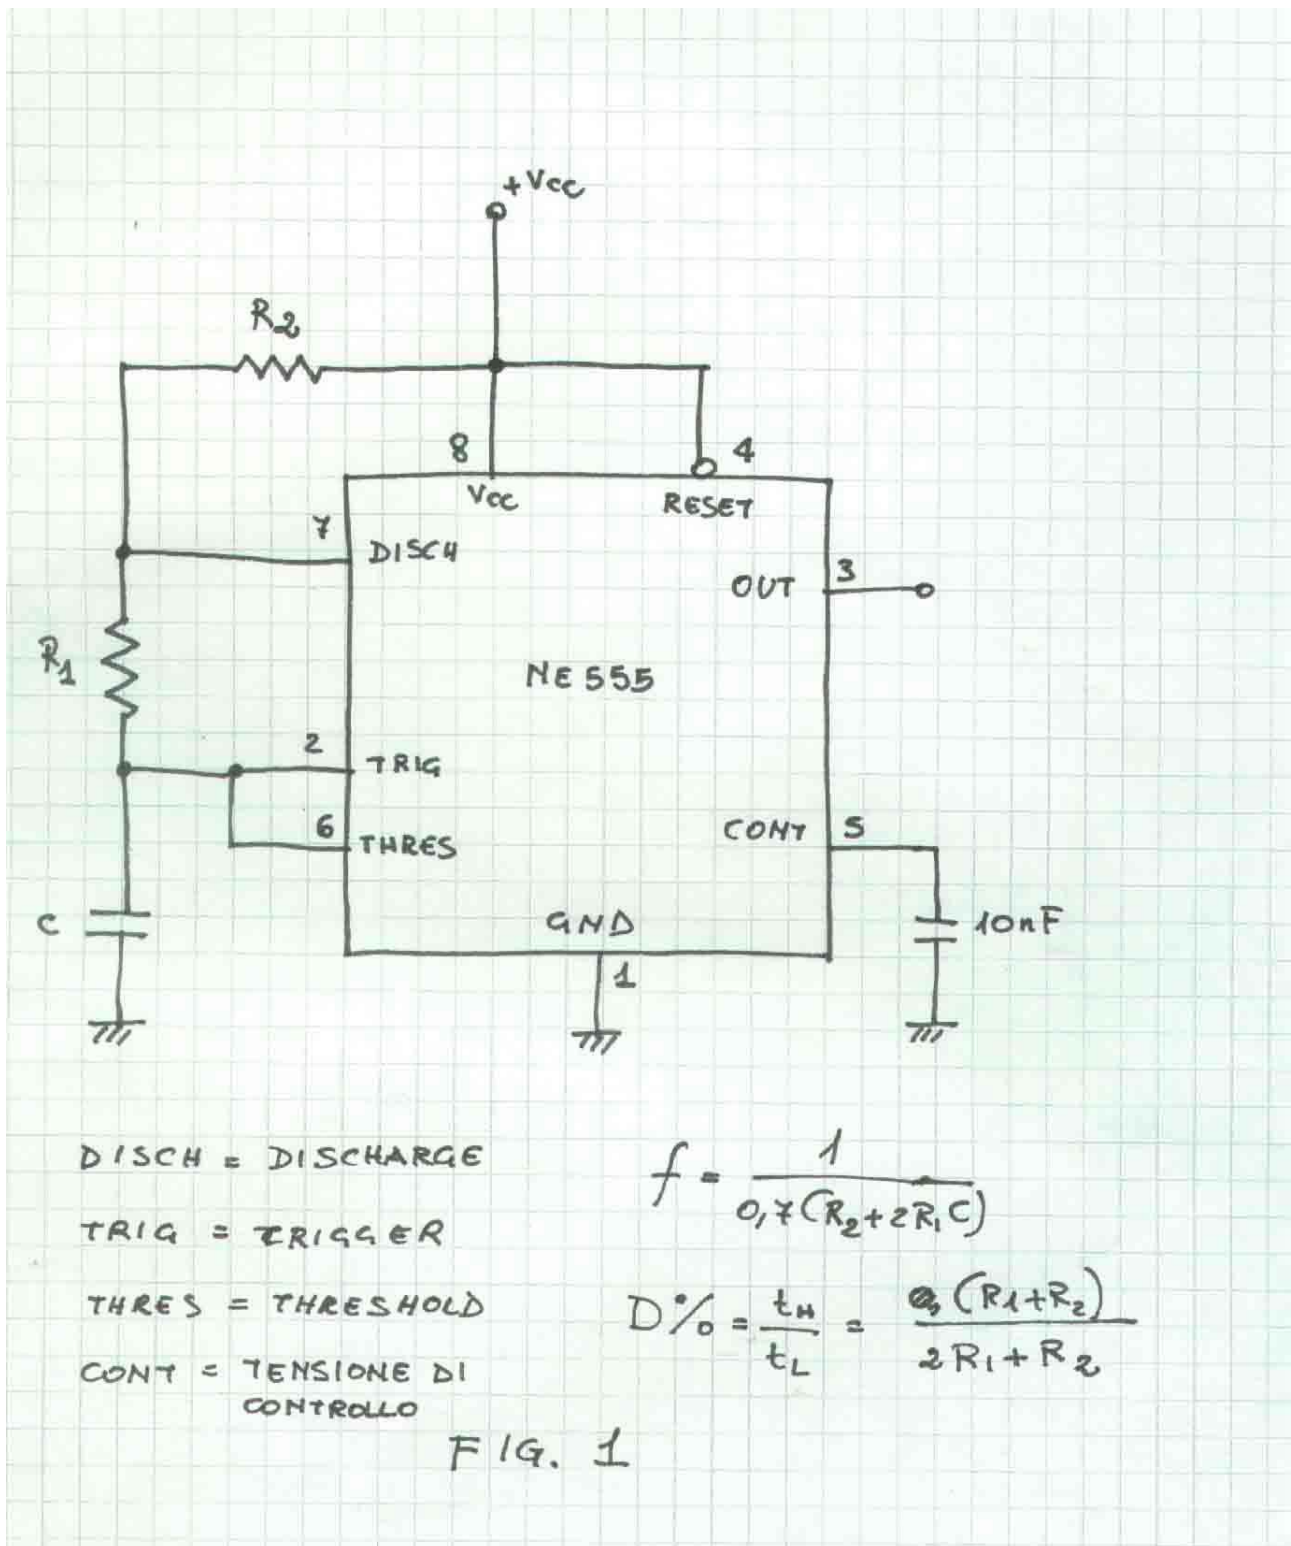 +Vcc
R2
8
4
Vcc
RESET
7
DISCH
3
OUT
R1
NE555
2
TRIG
6
THRES
CONT
5
C
GND
10nF
1
DISCH = DISCHARGE
TRIG = TRIGGER
THRES = THRESHOLD
CONT = TENSIONE DI
CONTROLLO
f = 1 / 0,7(R2+2R1C)
D% = tH / tL = (R1+R2) / 2R1+R2
FIG. 1